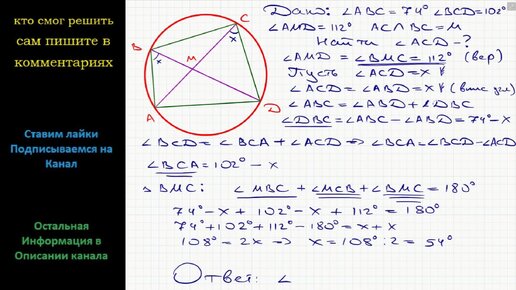 кто смог решить
сам пишите в
комментариях
Ставим лайки
Подписываемся на
Канал
Остальная
Информация в
Описании канала
B
C
x
x
M
A
D
Дано: ∠ABC = 74° ∠BCD=102°
∠AMD = 112° AC∩BC=M
Найти ∠ACD-?
∠AMD = ∠BMC = 112° (вер)
Пусть ∠ACD=x
∠ACD = ∠ABD=x (впис угл)
∠ABC = ∠ABD + ∠DBC
∠DBC = ∠ABC - ∠ABD = 74°-x
∠BCD = ∠BCA + ∠ACD ⇒ ∠BCA=∠BCD-∠ACD
∠BCA = 102° - x
△BMC: ∠MBC + ∠MCB + ∠BMC = 180°
74°-x + 102° - x + 112° = 180°
74°+102°+112°-180° = x+x
108° = 2x ⇒ x = 108°:2 = 54°
Ответ: ∠